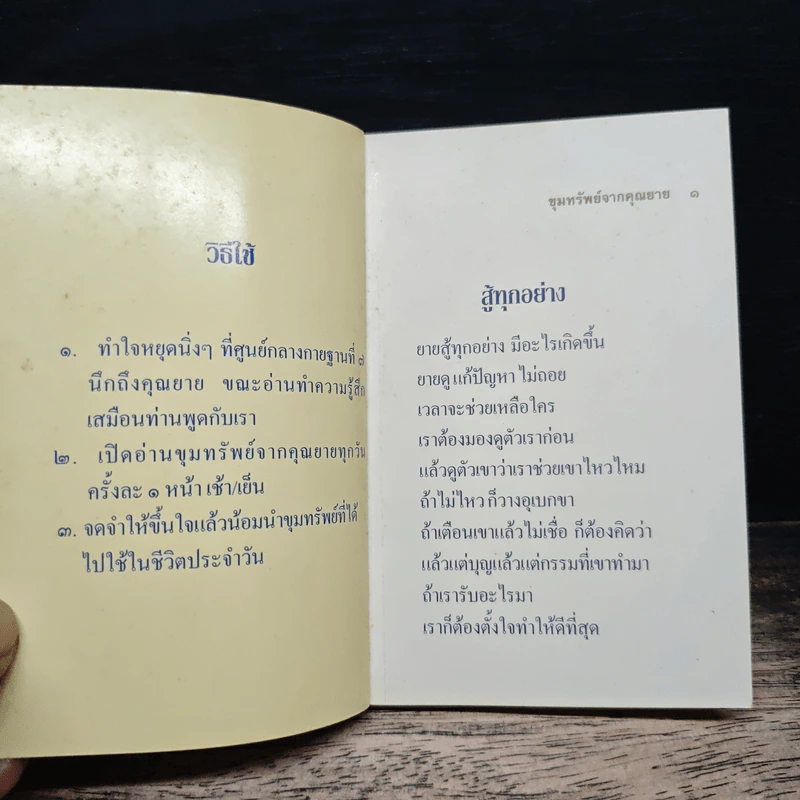 วิธีใช้
๑. ทำใจหยุดนิ่งๆ ที่ศูนย์กลางกายฐานที่ ๗
นึกถึงคุณยาย ขณะอ่านทำความรู้สึก
เสมือนท่านพูดกับเรา
๒. เปิดอ่านขุมทรัพย์จากคุณยายทุกวัน
ครั้งละ ๑ หน้า เช้า/เย็น
๓. จดจำให้ขึ้นใจแล้วน้อมนำขุมทรัพย์ที่ได้
ไปใช้ในชีวิตประจำวัน
ขุมทรัพย์จากคุณยาย ๑
สู้ทุกอย่าง
ยายสู้ทุกอย่าง มีอะไรเกิดขึ้น
ยายดู แก้ปัญหา ไม่ถอย
เวลาจะช่วยเหลือใคร
เราต้องมองดูตัวเราก่อน
แล้วดูตัวเขาว่าเราช่วยเขาไหวไหม
ถ้าไม่ไหว ก็วางอุเบกขา
ถ้าเตือนเขาแล้วไม่เชื่อ ก็ต้องคิดว่า
แล้วแต่บุญแล้วแต่กรรมที่เขาทำมา
ถ้าเรารับอะไรมา
เราก็ต้องตั้งใจทำให้ดีที่สุด